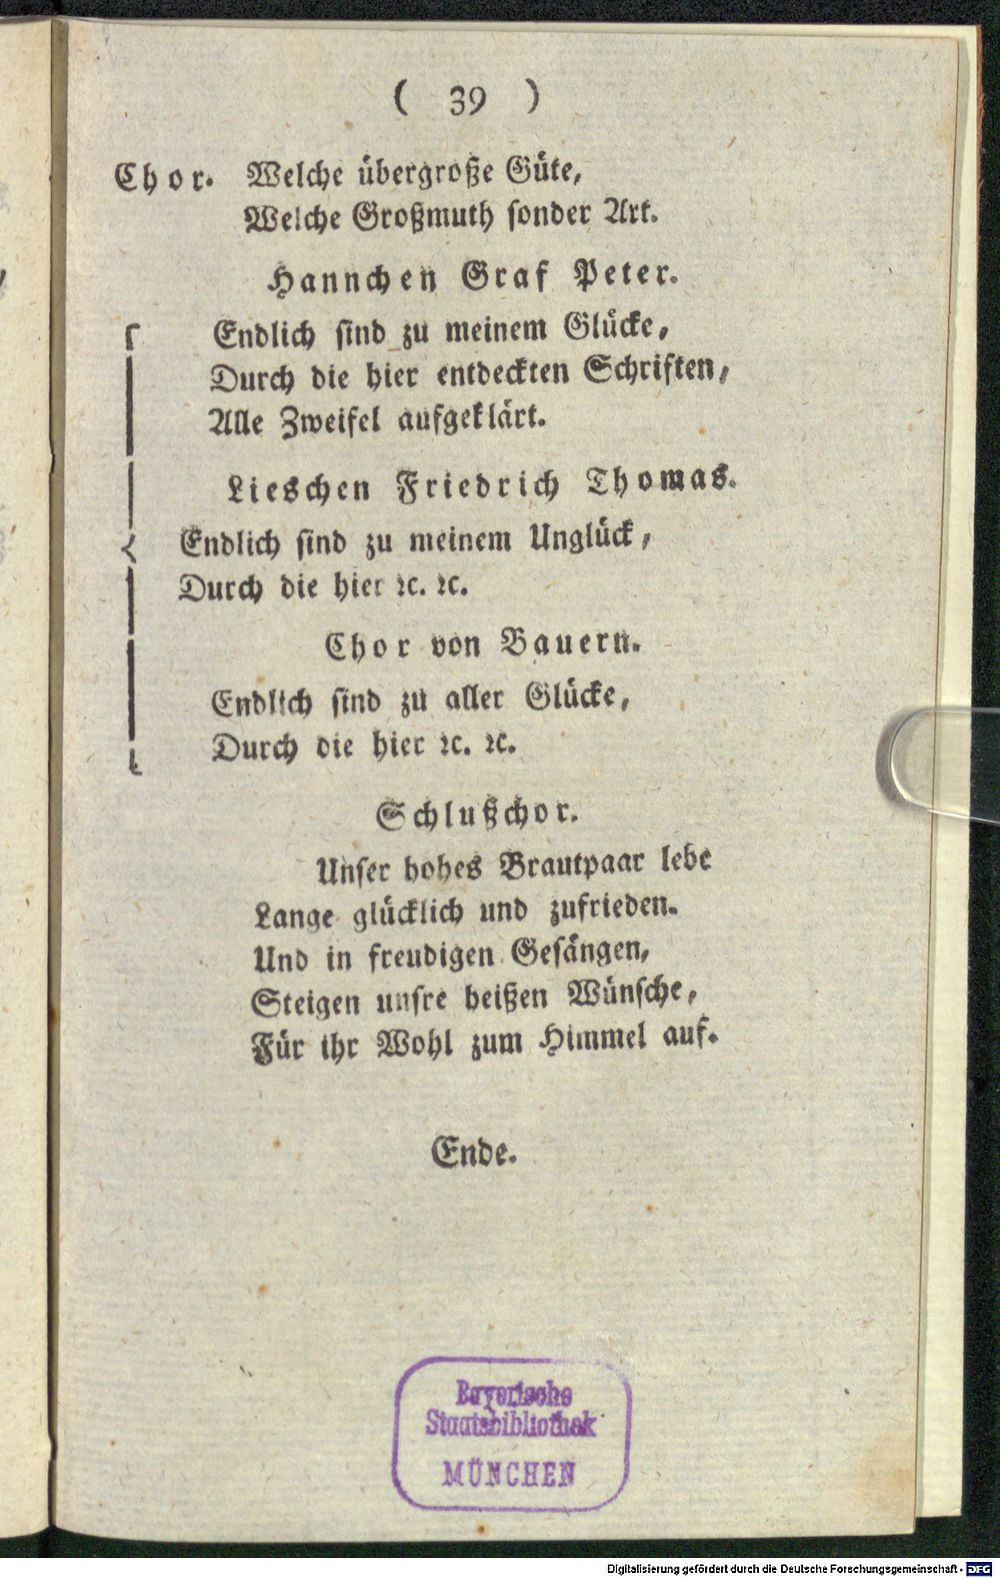 ( 39 )
Chor. Welche übergroße Güte,
Welche Großmuth sonder Art.
Hannchen Graf Peter.
Endlich sind zu meinem Glücke,
Durch die hier entdeckten Schriften,
Alle Zweifel aufgeklärt.
Lieschen Friedrich Thomas.
Endlich sind zu meinem Unglück,
Durch die hier ꝛc. ꝛc.
Chor von Bauern.
Endlich sind zu aller Glücke,
Durch die hier ꝛc. ꝛc.
Schlußchor.
Unser hohes Brautpaar lebe
Lange glücklich und zufrieden.
Und in freudigen Gesängen,
Steigen unsre heißen Wünsche,
Für ihr Wohl zum Himmel auf.
Ende.
Bayerische
Staatsbibliothek
MÜNCHEN
Digitalisierung gefördert durch die Deutsche Forschungsgemeinschaft - DFG